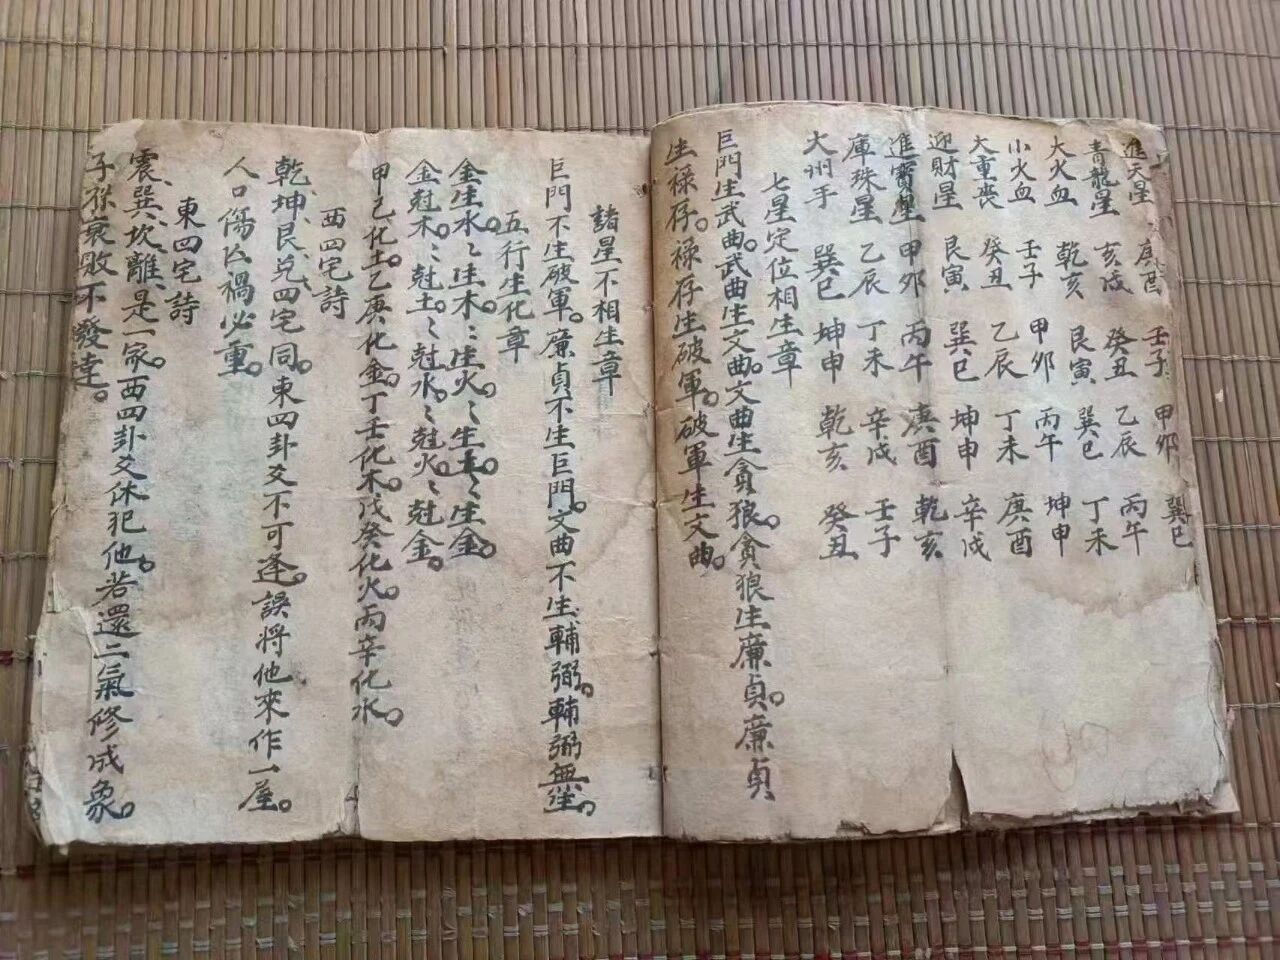 進天星 庚酉 壬子 甲卯 巽巳
青龍星 亥戌 癸丑 乙辰 丙午
大火血 乾亥 艮寅 巽巳 丁未
小火血 壬子 甲卯 丙午 坤申
大重喪 癸丑 乙辰 丁未 庚酉
迎財星 艮寅 巽巳 坤申 辛戌
進寶星 甲卯 丙午 庚酉 乾亥
庫珠星 乙辰 丁未 辛戌 壬子
大州手 巽巳 坤申 乾亥 癸丑
七星定位相生章
巨門生武曲。武曲生文曲。文曲生貪狼。貪狼生廉貞。廉貞
生祿存。祿存生破軍。破軍生文曲。
諸星不相生章
巨門不生破軍。廉貞不生巨門。文曲不生輔弼。輔弼無生。
五行生化章
金生水。〻生木。〻生火。〻生土。〻生金。
金尅木。〻尅土。〻尅水。〻尅火。〻尅金。
甲己化土。乙庚化金。丁壬化木。戊癸化火。丙辛化水。
西四宅詩
乾、坤、艮、兑、四宅同。東四卦爻不可逢。誤將他來作一屋。
人口傷亡禍必重。
東四宅詩
震、巽、坎、離、是一家。西四卦爻休犯他。若還二氣修成象。
子孫衰敗不發達。